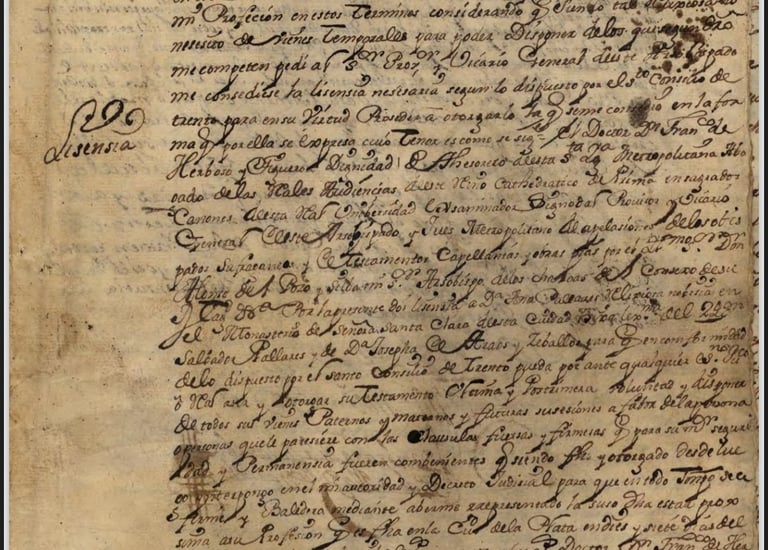 mi Profecion en estos Terminos considerando q̃
nesesito de vienes Temporales para poder Disponer de los que segun dro
me competen pedi al Sr Prov.r y Vicario General de este Arsobispado
me consediese la lisensia nesesaria segun lo dispuesto por el sto Consilio de
trento para en su Virtud Proseder a otorgarlo la q̃ se me consedio en la for
Lisensia
ma q̃ por ella se expresa cuio Tenor es como se sigue El Doctor Dn Franco de
Herboso y Figueroa Dignidad de Thesorero de esta Sta Metropolitana Abo
gado de las Rales Audiencias de este Rno Cathedratico de Prima en sagrados
Canones de esta Rl Universidad Exsaminador Provisor y Vicario
General de este Arsobispado y Jues Metropolitano de apelasiones de los obis
pados sufraganeos y de Testamentos Capellanias y obras pias por el Sr Don
Alonso del Poso y Silva mi Sr Arsobispo de los charcas del Consexo de su
Magd Por la presente doi lisensia a Da Ana Pallares Religiosa nobisia en
el Monasterio de Señora Santa Clara de esta Ciudad hija
Salbador Pallares y de Da Josepha de Araos y Zeballos para q̃ en conformidad
de lo dispuesto por el santo Consilio de Trento pueda por ante qualquier
o Rl aser y otorgar su Testamento Ultima y Postrimera Voluntad y disponer
de todos sus vienes Paternos y maternos y futuras susesiones a fabor de la persona
o personas que le paresiere con las Clausulas fuersas y firmesas q̃ para su mr seguri
dad y Permanensia fueren combenientes q̃ siendo fho y otorgado desde lue
go interpongo en el mi autoridad y Decreto Judicial para que en todo Tiempo sea
firme y Baledera mediante aberme rrepresentado la suso dha estar prox
sima a su Profesion q̃ es fha en la Ciud de la Plata en dies y siete dias del